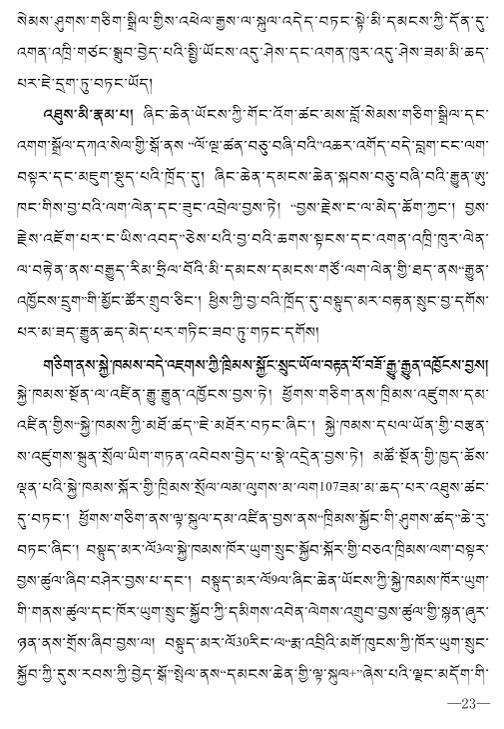 སེམས་ཤུགས་གཅིག་སྒྲིལ་གྱིས་འཕེལ་རྒྱས་ལ་སྐུལ་འདེད་བཏང་སྟེ་མི་དམངས་ཀྱི་དོན་དུ་
འགན་འཁྲི་གཙང་སྒྲུབ་བྱེད་པའི་སྤྱི་ཡོངས་འདུ་ཤེས་དང་འགན་ཁུར་འདུ་ཤེས་ཟམ་མི་ཆད་
པར་ཇེ་དྲག་ཏུ་བཏང་ཡོད།
འཐུས་མི་རྣམ་པ། ཞིང་ཆེན་ཡོངས་ཀྱི་གོང་འོག་ཚང་མས་བློ་སེམས་གཅིག་སྒྲིལ་དང་
འགག་སྒྲོལ་དཀའ་སེལ་གྱི་སྒོ་ནས་“ལོ་ལྔ་ཚན་བཅུ་བཞི་བའི”འཆར་འགོད་བདེ་བླག་ངང་ལག་
བསྟར་དང་མཇུག་སྡུད་པའི་ཁྲོད་དུ། ཞིང་ཆེན་དམངས་ཆེན་སྐབས་བཅུ་བཞི་བའི་རྒྱུན་ཨུ་
ཁང་གིས་བྱ་བའི་ལག་ལེན་དང་ཟུང་འབྲེལ་བྱས་ཏེ། “བྱས་རྗེས་ང་ལ་མེད་ཆོག་ཀྱང་། བྱས་
རྗེས་འཇོག་པར་ང་ཡིས་འབད”ཅེས་པའི་བྱ་བའི་ཆགས་སྟངས་དང་འགན་འཁྲི་ཁུར་ལེན་
ལ་བརྟེན་ནས་བརྒྱུད་རིམ་ཧྲིལ་བོའི་མི་དམངས་དམངས་གཙོ་ལག་ལེན་གྱི་ཐད་ནས“རྒྱུན་
འཁྱོངས་དྲུག”གི་མྱོང་ཚོར་གྲུབ་ཅིང་། ཕྱིས་ཀྱི་བྱ་བའི་ཁྲོད་དུ་བསྟུད་མར་བརྟན་སྲུང་བྱ་དགོས་
པར་མ་ཟད་རྒྱུན་ཆད་མེད་པར་གཏིང་ཟབ་ཏུ་གཏང་དགོས།
གཅིག་ནས་སྐྱེ་ཁམས་བདེ་འཇགས་ཀྱི་ཁྲིམས་སྐྱོང་སྲུང་ཡོལ་བརྟན་པོ་བཟོ་རྒྱུ་རྒྱུན་འཁྱོངས་བྱས།
སྐྱེ་ཁམས་སྔོན་ལ་འཛིན་རྒྱུ་རྒྱུན་འཁྱོངས་བྱས་ཏེ། ཕྱོགས་གཅིག་ནས་ཁྲིམས་འཛུགས་དམ་
འཛིན་གྱིས“སྐྱེ་ཁམས་ཀྱི་མཐོ་ཚད”ཇེ་མཐོར་བཏང་ཞིང་། སྐྱེ་ཁམས་དཔལ་ཡོན་གྱི་བརྩན་
ས་འཛུགས་སྐྲུན་སྲོལ་ཡིག་གཏན་འབེབས་བྱེད་པ་སྣེ་འདྲེན་བྱས་ཏེ། མཚོ་སྔོན་གྱི་ཁྱད་ཆོས་
ལྡན་པའི་སྐྱེ་ཁམས་སྐོར་གྱི་ཁྲིམས་སྲོལ་ལམ་ལུགས་མ་ལག107ཟམ་མ་ཆད་པར་འཐུས་ཚང་
དུ་བཏང་། ཕྱོགས་གཅིག་ནས་ལྟ་སྐུལ་དམ་འཛིན་བྱས་ནས“ཁྲིམས་སྐྱོང་གི་ཤུགས་ཚད”ཆེ་རུ་
བཏང་ཞིང་། བསྟུད་མར་ལོ3ལ་སྐྱེ་ཁམས་ཁོར་ཡུག་སྲུང་སྐྱོབ་སྐོར་གྱི་བཅའ་ཁྲིམས་ལག་བསྟར་
བྱས་ཚུལ་ཞིབ་བཤེར་བྱས་པ་དང་། བསྟུད་མར་ལོ9ལ་ཞིང་ཆེན་ཡོངས་ཀྱི་སྐྱེ་ཁམས་ཁོར་ཡུག་
གི་གནས་ཚུལ་དང་ཁོར་ཡུག་སྲུང་སྐྱོབ་ཀྱི་དམིགས་འབེན་ལེགས་འགྲུབ་བྱས་ཚུལ་གྱི་སྙན་ཞུར་
ཉན་ནས་གྲོས་ཞིབ་བྱས་ལ། བསྟུད་མར་ལོ30རིང་ལ“རྨ་འབྲིའི་མགོ་ཁུངས་ཀྱི་ཁོར་ཡུག་སྲུང་
སྐྱོབ་ཀྱི་དུས་རབས་ཀྱི་བྱེད་སྒོ”སྤེལ་ནས“དམངས་ཆེན་གྱི་ལྟ་སྐུལ+”ཞེས་པའི་ལྗང་མདོག་གི་
—23—